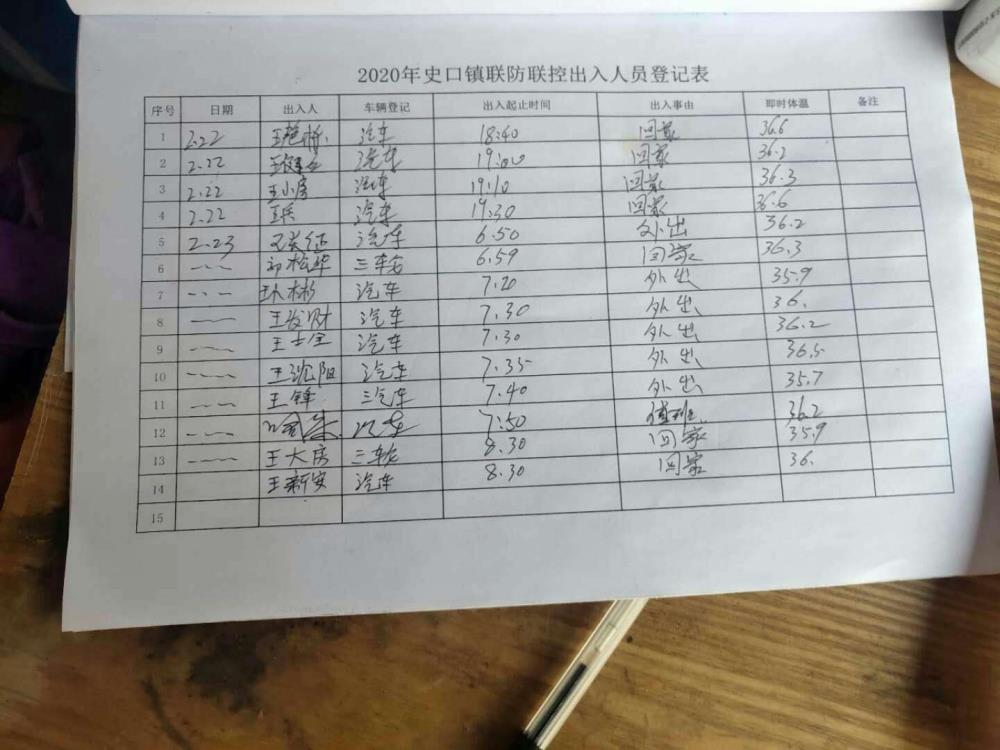 2020年史口镇联防联控出入人员登记表
序号 日期 出入人 车辆登记 出入起止时间 出入事由 即时体温 备注
1 2.22 汽车 18:40 回家 36.6
2 2.22 汽车 19:00 回家 36.2
3 2.22 王小房 汽车 19:10 回家 36.3
4 2.22 汽车 19:30 回家 36.6
5 2.23 汽车 6.50 外出 36.2
6 松华 三车 6.59 回家 36.3
7 彬 汽车 7.20 外出 35.9
8 王发财 汽车 7.30 外出 36.
9 王士全 汽车 7.30 外出 36.2
10 王沈阳 汽车 7.35 外出 36.5
11 王锋 汽车 7.40 外出 35.7
12 7:50 值班 36.2
13 王大房 三车 8.30 回家 35.9
14 王新安 汽车 8.30 回家 36.
15